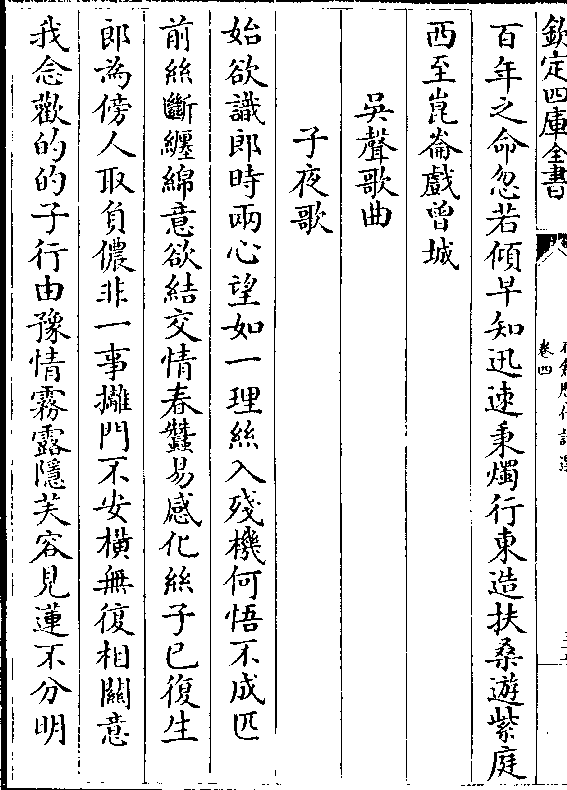 欽定四庫全書
卷四
百年之命忽若傾早知迅速秉燭行東造扶桑遊紫庭
西至崑崙戲曾城
吳聲歌曲
子夜歌
始欲識郎時兩心望如一理絲入殘機何悟不成匹
前絲斷纏綿意欲結交情春蠶易感化絲子已復生
郎為傍人取負儂非一事攡門不安橫無復相關意
我念歡的的子行由豫情霧露隱芙容見蓮不分明